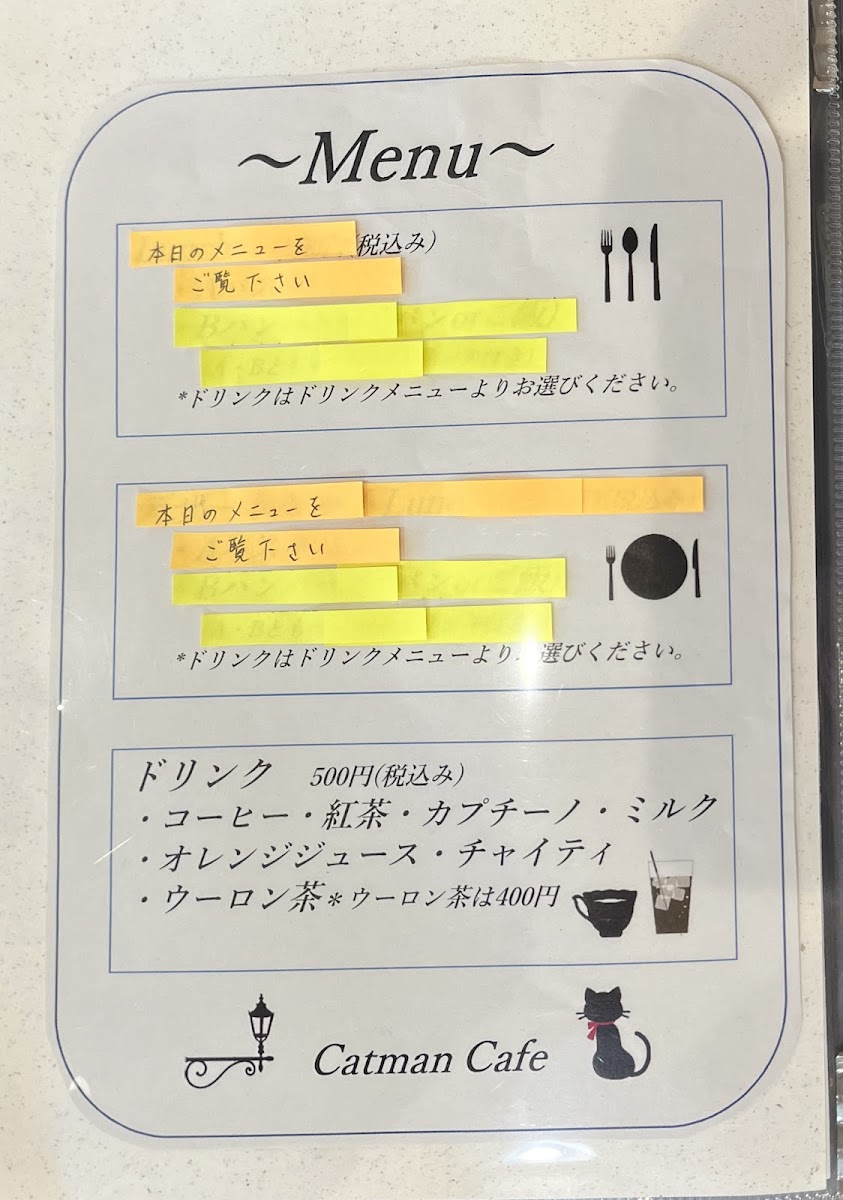 ～Menu～
本日のメニューを (税込み)
ご覧下さい
*ドリンクはドリンクメニューよりお選びください。
本日のメニューを
ご覧下さい
*ドリンクはドリンクメニューより 選びください。
ドリンク 500円(税込み)
・コーヒー・紅茶・カプチーノ・ミルク
・オレンジジュース・チャイティ
・ウーロン茶＊ウーロン茶は400円
Catman Cafe